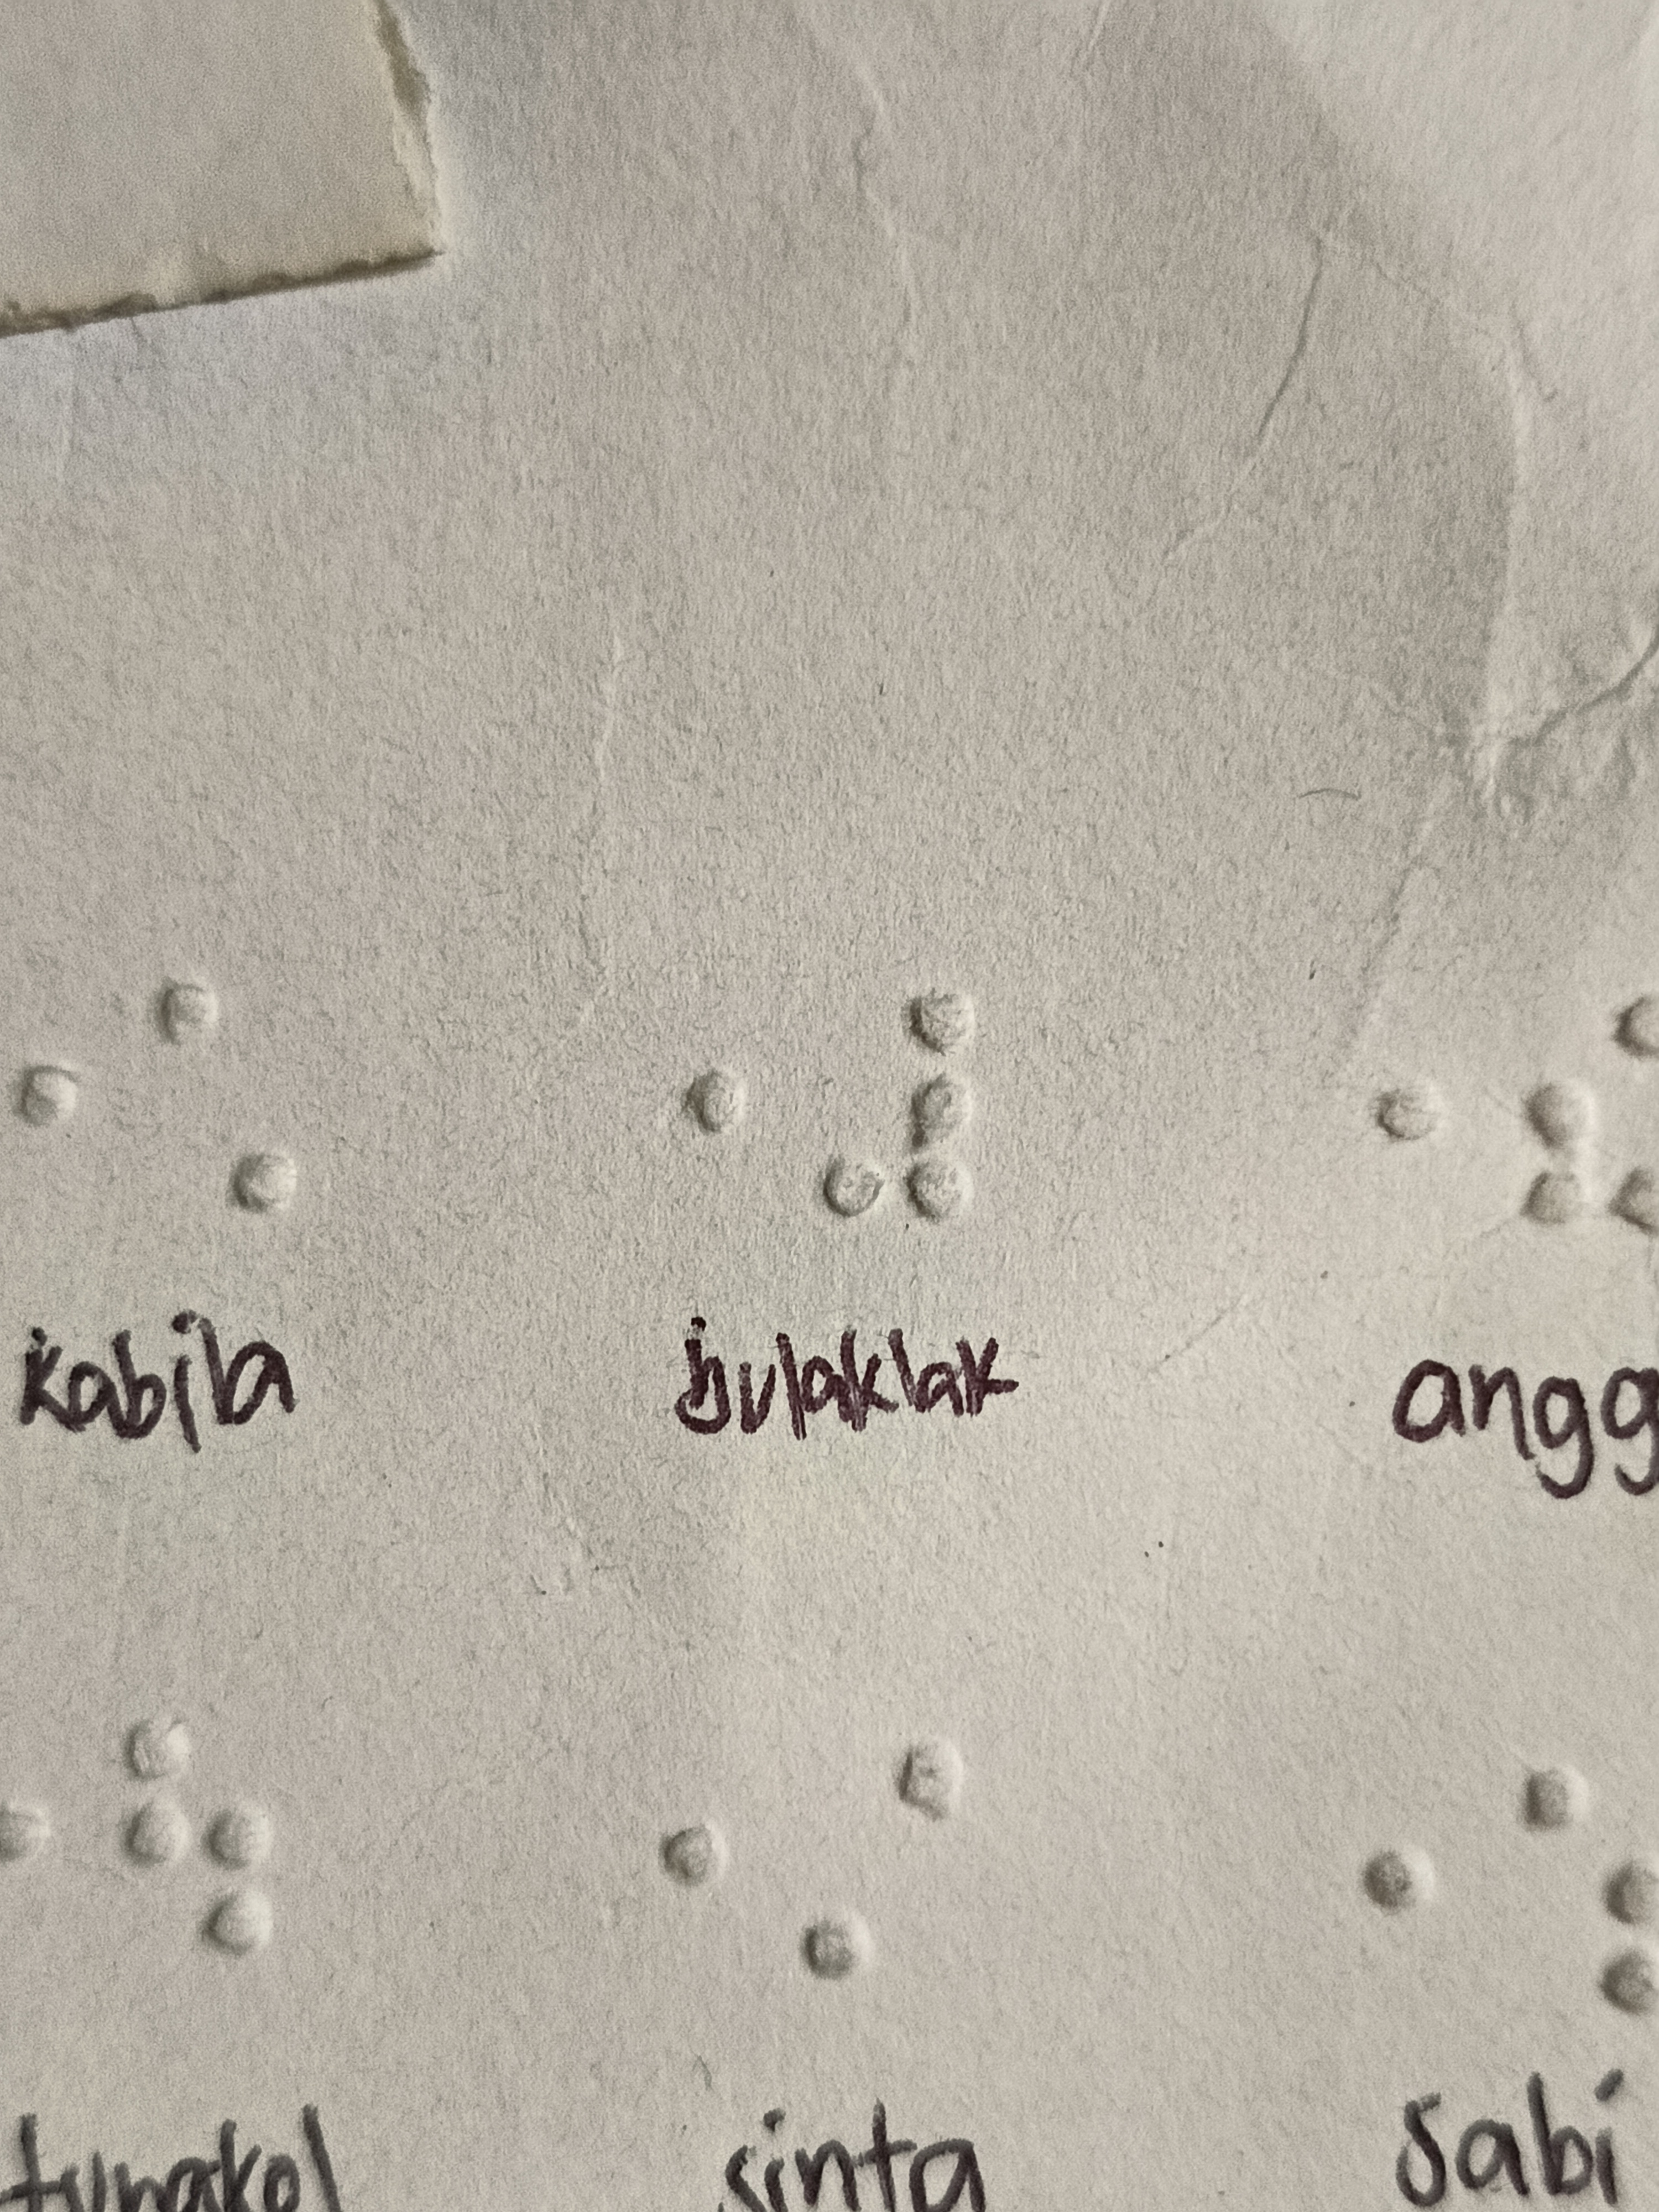 ⠐⠡ ⠐⠼ ⠐⠮
kabila bulaklak angg
⠐⠳ ⠐⠌ ⠐⠱
tungkol sinta sabi